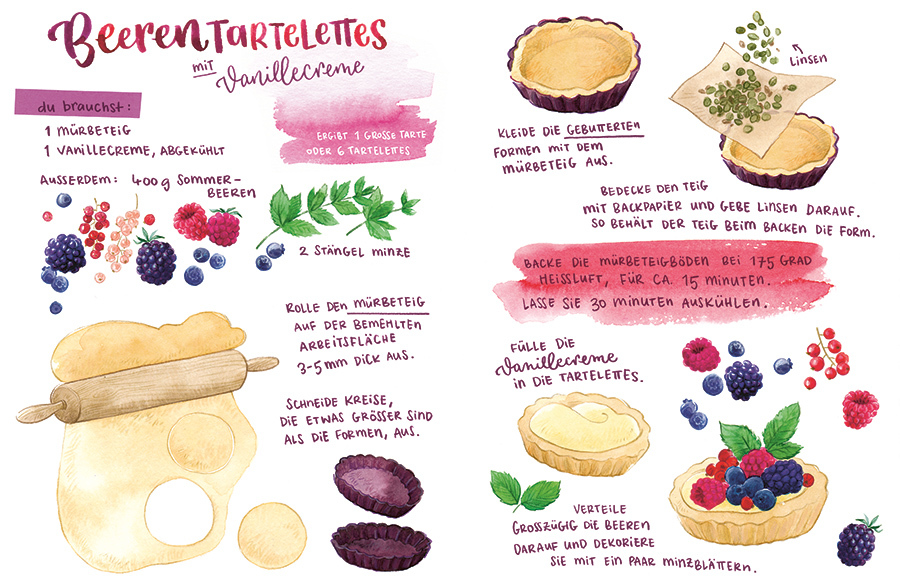 BEERENTARTELETTES
MIT Vanillecreme
du brauchst:
1 MÜRBETEIG
1 VANILLECREME, ABGEKÜHLT
ERGIBT 1 GROSSE TARTE
ODER 6 TARTELETTES
AUSSERDEM: 400g SOMMER-
BEEREN
2 STÄNGEL MINZE
ROLLE DEN MÜRBETEIG
AUF DER BEMEHLTEN
ARBEITSFLÄCHE
3-5mm DICK AUS.
SCHNEIDE KREISE,
DIE ETWAS GRÖSSER SIND
ALS DIE FORMEN, AUS.
LINSEN
KLEIDE DIE GEBUTTERTEN
FORMEN MIT DEM
MÜRBETEIG AUS.
BEDECKE DEN TEIG
MIT BACKPAPIER UND GEBE LINSEN DARAUF.
SO BEHÄLT DER TEIG BEIM BACKEN DIE FORM.
BACKE DIE MÜRBETEIGBÖDEN BEI 175 GRAD
HEISSLUFT, FÜR CA. 15 MINUTEN.
LASSE SIE 30 MINUTEN AUSKÜHLEN.
FÜLLE DIE
Vanillecreme
IN DIE TARTELETTES.
VERTEILE
GROSSZÜGIG DIE BEEREN
DARAUF UND DEKORIERE
SIE MIT EIN PAAR MINZBLÄTTERN.